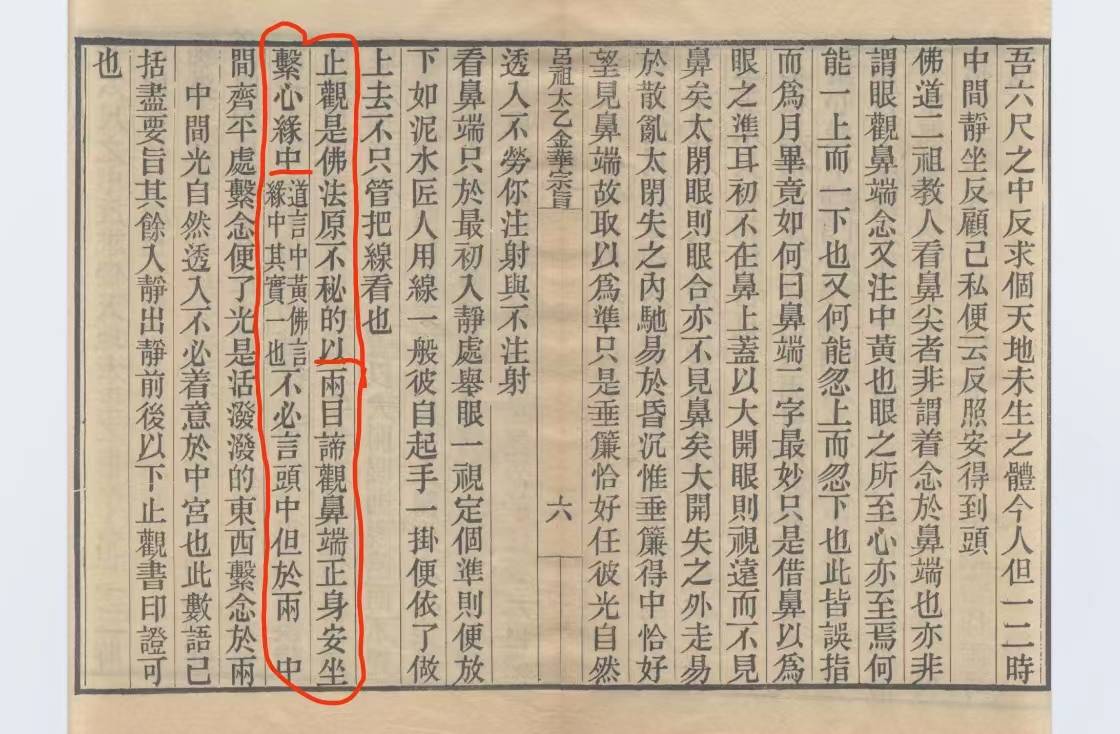 吾六尺之中反求個天地未生之體今人但一二時
中間靜坐反顧己私便云反照安得到頭
佛道二祖教人看鼻尖者非謂着念於鼻端也亦非
謂眼觀鼻端念又注中黃也眼之所至心亦至焉何
能一上而一下也又何能忽上而忽下也此皆誤指
而爲月畢竟如何曰鼻端二字最妙只是借鼻以爲
眼之準耳初不在鼻上蓋以大開眼則視遠而不見
鼻矣太閉眼則眼合亦不見鼻矣大開失之外走易
於散亂太閉失之內馳易於昏沉惟垂簾得中恰好
望見鼻端故取以爲準只是垂簾恰好任彼光自然
呂祖太乙金華宗旨
六
透入不勞你注射與不注射
看鼻端只於最初入靜處舉眼一視定個準則便放
下如泥水匠人用線一般彼自起手一掛便依了做
上去不只管把線看也
止觀是佛法原不秘的以兩目諦觀鼻端正身安坐
繫心緣中道言中黃佛言緣中其實一也不必言頭中但於兩 中
間齊平處繫念便了光是活潑潑的東西繫念於兩
中間光自然透入不必着意於中宮也此數語已
括盡要旨其餘入靜出靜前後以下止觀書印證可
也